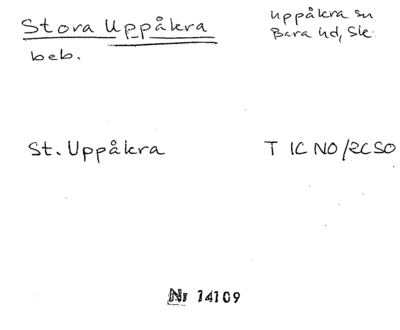 Stora Uppåkra
uppåkra sn
beb.
Bara hd, Ske
St. Uppåkra T IC NO/2C SO
Nr 14109